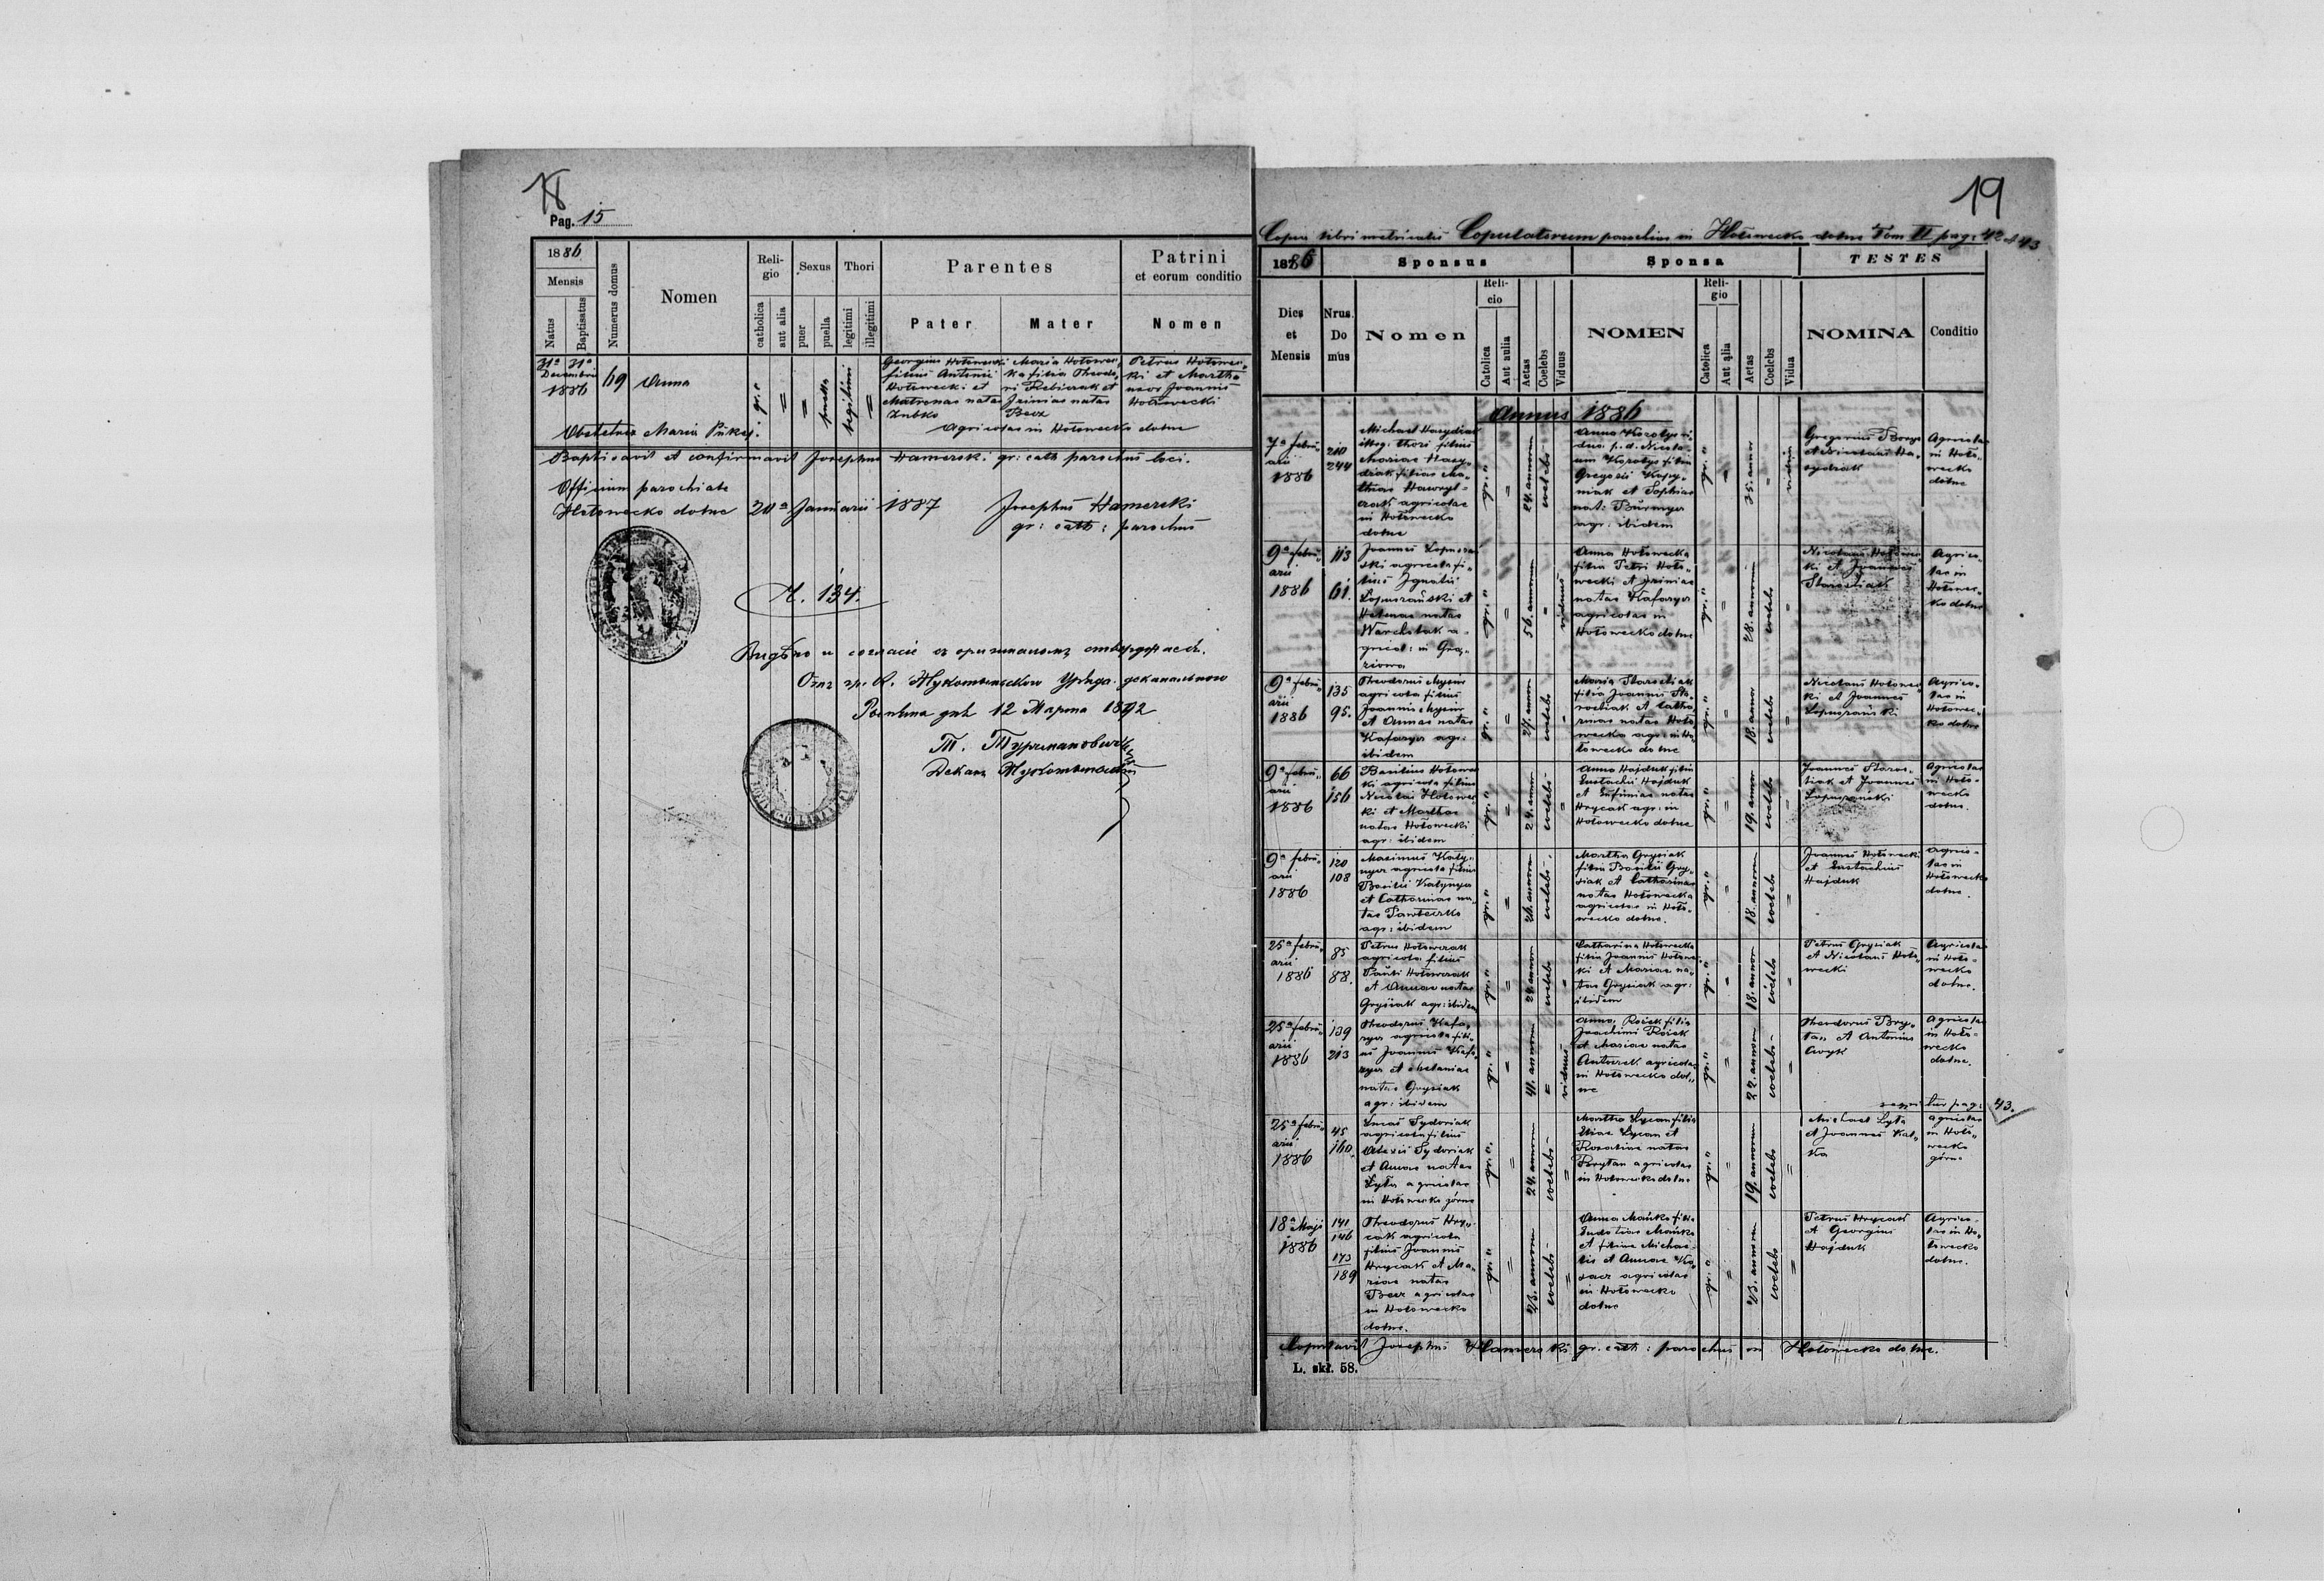 18
Pag. 15
1886
Mensis
Natus
Baptisatus
Numerus domus
Nomen
Reli-
gio
catholica
aut alia
Sexus
puer
puella
Thori
legitimi
illegitimi
Parentes
Pater
Mater
Patrini
et eorum conditio
Nomen
31a 31a
Decembris
1886
69
Anna
gr. "
puella
legitimi
Georgius Hołowecki
filius Antonii
Hołowecki et
Matronae natae
Zubko
Maria Hołowec
ka filia Theodo
ri Rebiczak et
Iriniae natae
Becz
Petrus Hołowec
ki et Martha
uxor Joannis
Hołowecki
Agricolae in Hołowecko dolne
Obstetrix Maria
Baptisavit et confirmavit Josephus Hamerski gr: cath parochus loci.
Officium parochiale
Hołowecko dolne 20a Januarii 1887 Josephus Hamerski
gr: cath: parochus
Ч. 134.
Видѣно и согласіе съ оригиналомъ стверджаєсь.
Отъ гр. к. Жукотинского Уряда деканального
дня 12 Марта 1892
Т. Турчманович
Деканъ Жукотинскій
19
Copia libri metricalis Copulatorum parochiae in Hołowecko dolne Tom II pag: 42 et 43
1886
Sponsus
Sponsa
TESTES
Dies
et
Mensis
Nrus.
Do
mus
Nomen
Reli-
cio
Catolica
Aut aulia
Aetas
Coelebs
Viduus
NOMEN
Reli-
gio
Catolica
Aut alia
Aetas
Coelebs
Vidua
NOMINA
Conditio
Annus 1886
7a febru-
arii
1886
210
244
Michael
illeg: thori filius
Mariae
filiae Ma-
thiae
agricolae
in Hołowecko
dolne
gr. "
24. annorum
coelebs
Anna
Gregorii
et Sophiae
nat:
agr: ibidem
gr. "
35. annor
vidua
Gregorius
et Nicolaus
Agricolae
in Hoło-
wecko
dolne
9a febru-
arii
1886
113
61.
Joannes Łopuszań
ski agricola fi-
lius Ignatii
Łopuszański et
Helenae natae
a-
gricol: in
gr. "
56. annorum
viduus
Anna Hołowecka
filia Petri Hoło-
wecki et Iriniae
natae Kafarya
agricolae in
Hołowecko dolne
gr. "
28. annorum
coelebs
Nicolaus Hołowec
ki et Joannes
Starostiak
Agrico-
lae in
Hołowec-
ko dolne
9a febru-
arii
1886
135
95.
Theodorus
agricola filius
Joannis
et Annae natae
Kafarya agr:
ibidem
gr. "
27. annor
coelebs
Maria Starostiak
filia Joannis Sta-
rostiak et Catha-
rinae natae Hoło-
wecka agr: in Ho-
łowecko dolne
gr. "
18. annor
coelebs
Nicolaus Hołowec
ki et Joannes
Łopuszański
Agrico-
lae in
Hołowec-
ko dolne
9a febru-
arii
1886
66
156
Basilius Hołowec
ki agricola filius
Nicolai Hołowec
ki et Marthae
natae Hołowecki
agr: ibidem
gr. "
24. annor
coelebs
Anna Hajduk filia
Eustachii Hajduk
et Eufimiae natae
Hrycak agr: in
Hołowecko dolne
gr. "
19. annor
coelebs
Joannes Staros-
tiak et Joannes
Łopuszański
Agricolae
in Hoło-
wecko
dolne.
9a febru-
arii
1886
120
108
Maximus Katy-
nya agricola filius
Basilii Katynya
et Catharinae na-
tae Pawłeczko
agr: ibidem
gr. "
26. annorum
coelebs
Martha Grysiak
filia Basilii Gry-
siak et Catharinae
natae Hołowecka
agricolae in Hoło-
wecko dolne.
gr. "
18. annorum
coelebs
Joannes Hołowecki
et Eustachius
Hajduk
agrico-
lae in
Hołowecko
dolne.
25a febru-
arii
1886
85
88.
Petrus Hołowczak
agricola filius
Pauli Hołowczak
et Annae natae
Grysiak agr: ibidem
gr. "
24. annor
coelebs
Catharina Hołowecka
filia Joannis Hołowec
ki et Mariae na-
tae Grysiak agr:
ibidem
gr. "
18. annor
coelebs
Petrus Grysiak
et Nicolaus Hoło-
wecki
Agricolae
in Hoło-
wecko
dolne.
25a febru-
arii
1886
139
213
Theodorus Kafa-
rya agricola fili-
us Joannis Kafa-
rya et Melaniae
natae Grysiak
agr: ibidem
gr. "
41. annorum
viduus
Anna Roik filia
Joachimi Roik
et Mariae natae
Antoszek agricolae
in Hołowecko dol-
ne
gr. "
22. annorum
coelebs
Theodorus Bry-
tan et Antonius
Agricolae
in Hoło-
wecko
dolne.
sequitur pag: 43.
25a febru-
arii
1886
45
160.
Lucas Sydoriak
agricola filius
Alexii Sydoriak
et Annae natae
Łyta agricolae
in Hołowecko górne
gr. "
24. annorum
coelebs
Martha Łycan filia
Eliae Łycan et
Rosaliae natae
Brytan agricolae
in Hołowecko dolne
gr. "
19. annorum
coelebs
Michael Łyta
et Joannes Kał-
ka
agricolae
in Hoło-
wecko
górne
18a Maji
1886
141
146
173
189
Theodorus Hry-
cak agricola
filius Joannis
Hrycak et Ma-
riae natae
Becz agricolae
in Hołowecko
dolne.
gr. "
23. annorum
coelebs
Anna Mańko filia
Eudotiae Mańko
et filiae Michae-
lis et Annae Ko-
agricolae
in Hołowecko
dolne
gr. "
23. annorum
coelebs
Petrus Hrycak
et Georgius
Hajduk
Agrico-
lae in Ho-
łowecko
dolne.
Copulavit Josephus Hamerski gr. cath: parochus in Hołowecko dolne.
L. skł. 58.